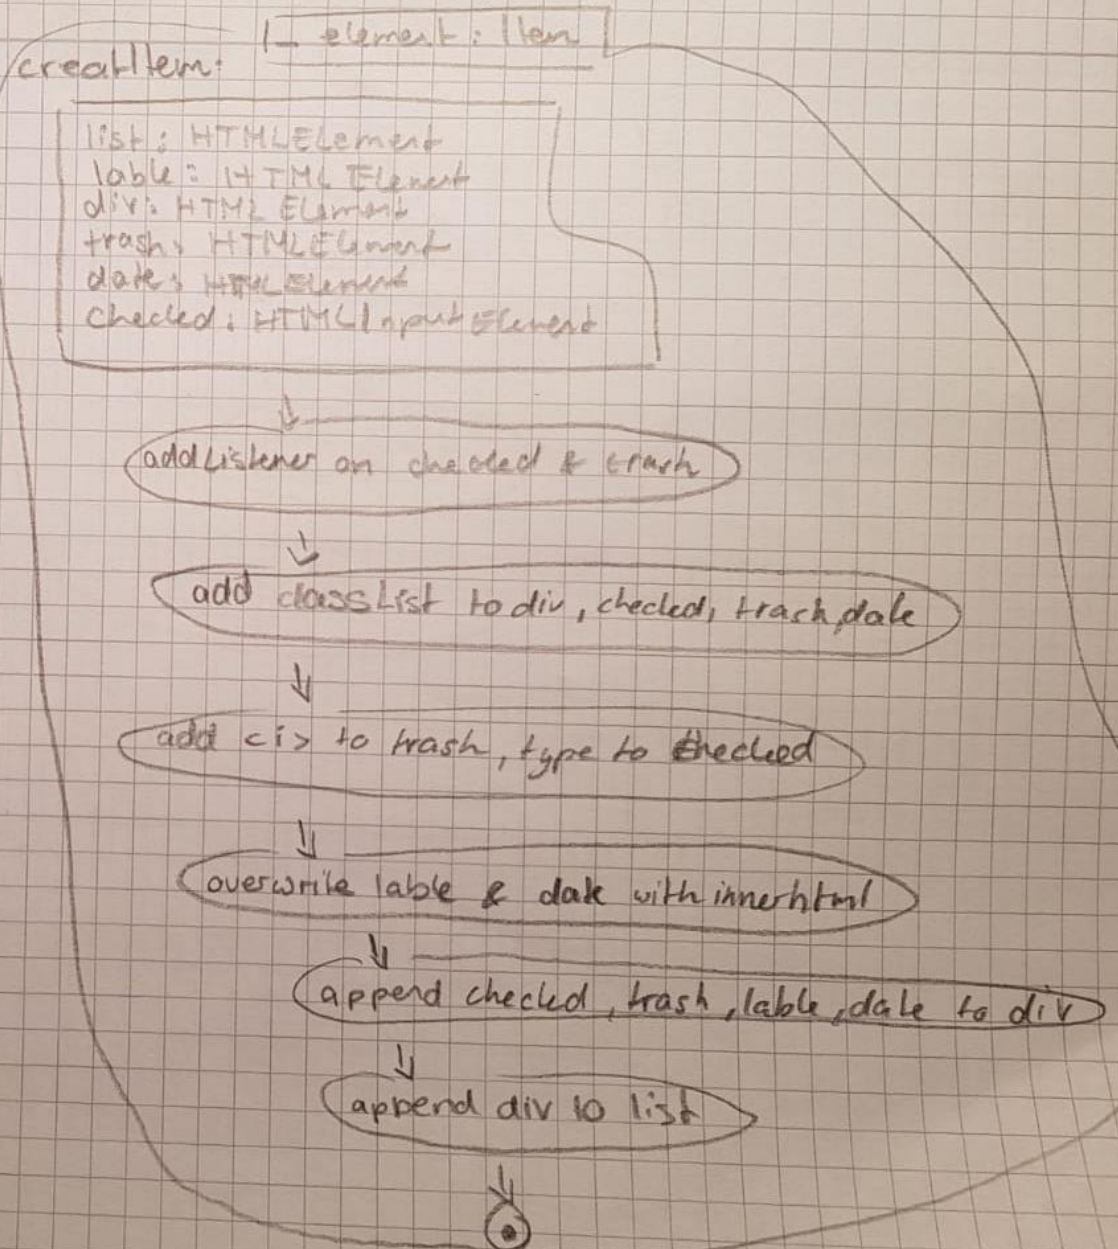 element: Item
creatItem:
list: HTMLElement
lable: HTML Element
div: HTML Element
trash: HTMLElement
date: HTMLElement
checked: HTMLInputElement
addListener on checked & trash
add classList to div, checked, trash, date
add <i> to trash, type to checked
overwrite lable & date with innerhtml
append checked, trash, lable, date to div
append div to list